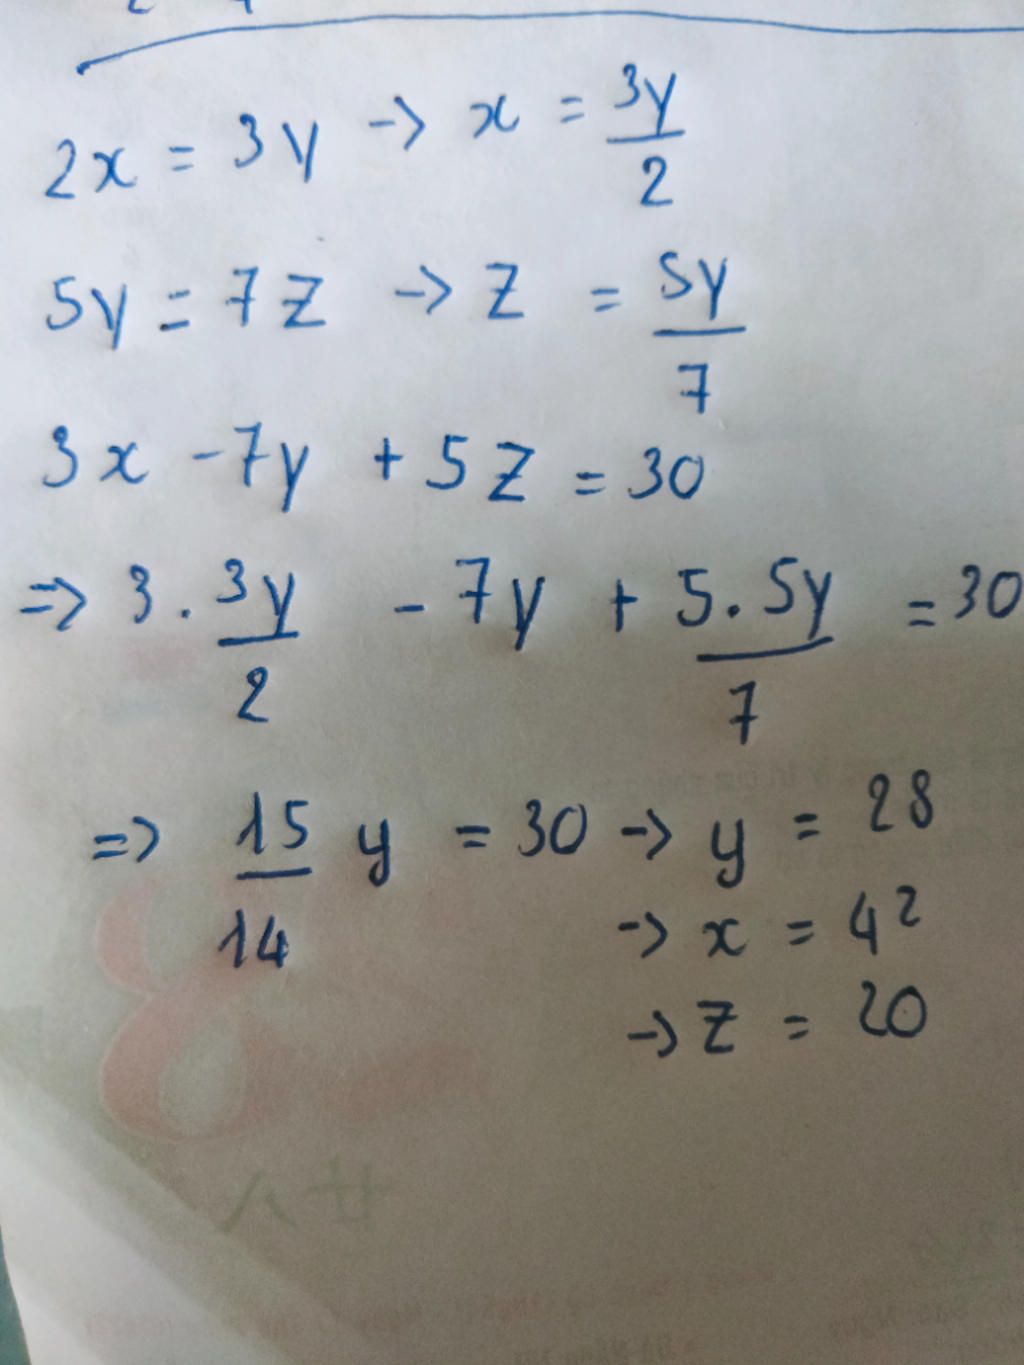 2x = 3y -> x = 3y/2
5y = 7z -> z = 5y/7
3x - 7y + 5z = 30
=> 3 . 3y/2 - 7y + 5.5y/7 = 30
=> 15/14 y = 30 -> y = 28
-> x = 42
-> z = 20